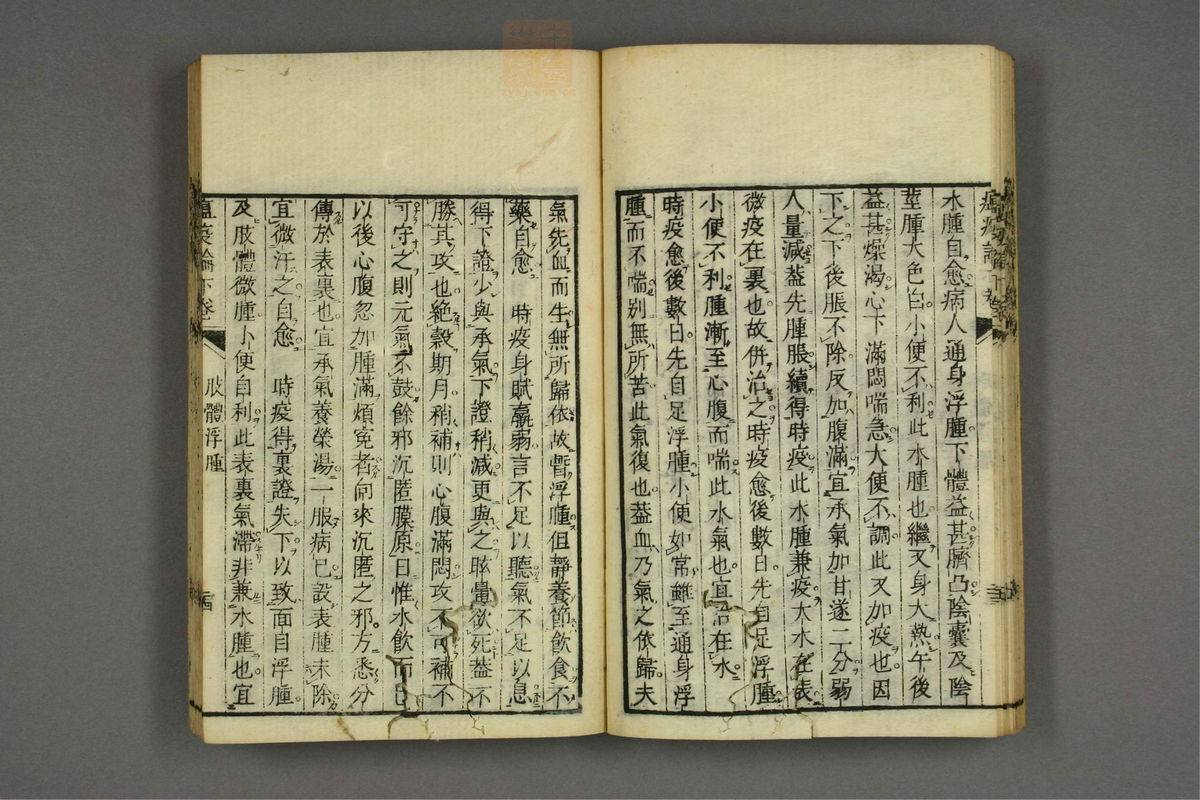 水腫自愈病人通身浮腫下體益甚臍凸陰囊及陰
莖腫大色白小便不利此水腫也繼又身大熱午後
益甚燥渴心下滿悶喘急大便不調此又加疫也因
下之下後脹不除反加腹滿宜承氣加甘遂二分弱
人量減葢先腫脹續得時疫此水腫兼疫大水在表
微疫在裏也故併治之時疫愈後數日先自足浮腫
小便不利腫漸至心腹而喘此水氣也宜治在水
時疫愈後數日先自足浮腫小便如常雖至通身浮
腫而不喘別無所苦此氣復也葢血乃氣之依歸夫
氣先血而生無所歸依故暫浮腫但靜養節飲食不
藥自愈 時疫身賦羸弱言不足以聽氣不足以息
得下證少與承氣下證稍減更與之眩暈欲死葢不
勝其攻也絶穀期月稍補則心腹滿悶攻不可補不
可守之則元氣不鼓餘邪沉匿膜原日惟水飲而已
以後心腹忽加腫滿煩寃者向來沉匿之邪方悉分
傳於表裏也宜承氣養榮湯一服病已設表腫未除
宜微汗之自愈 時疫得裏證失下以致面目浮腫
及肢體微腫小便自利此表裏氣滯非兼水腫也宜
瘟疫論下卷 肢體浮腫